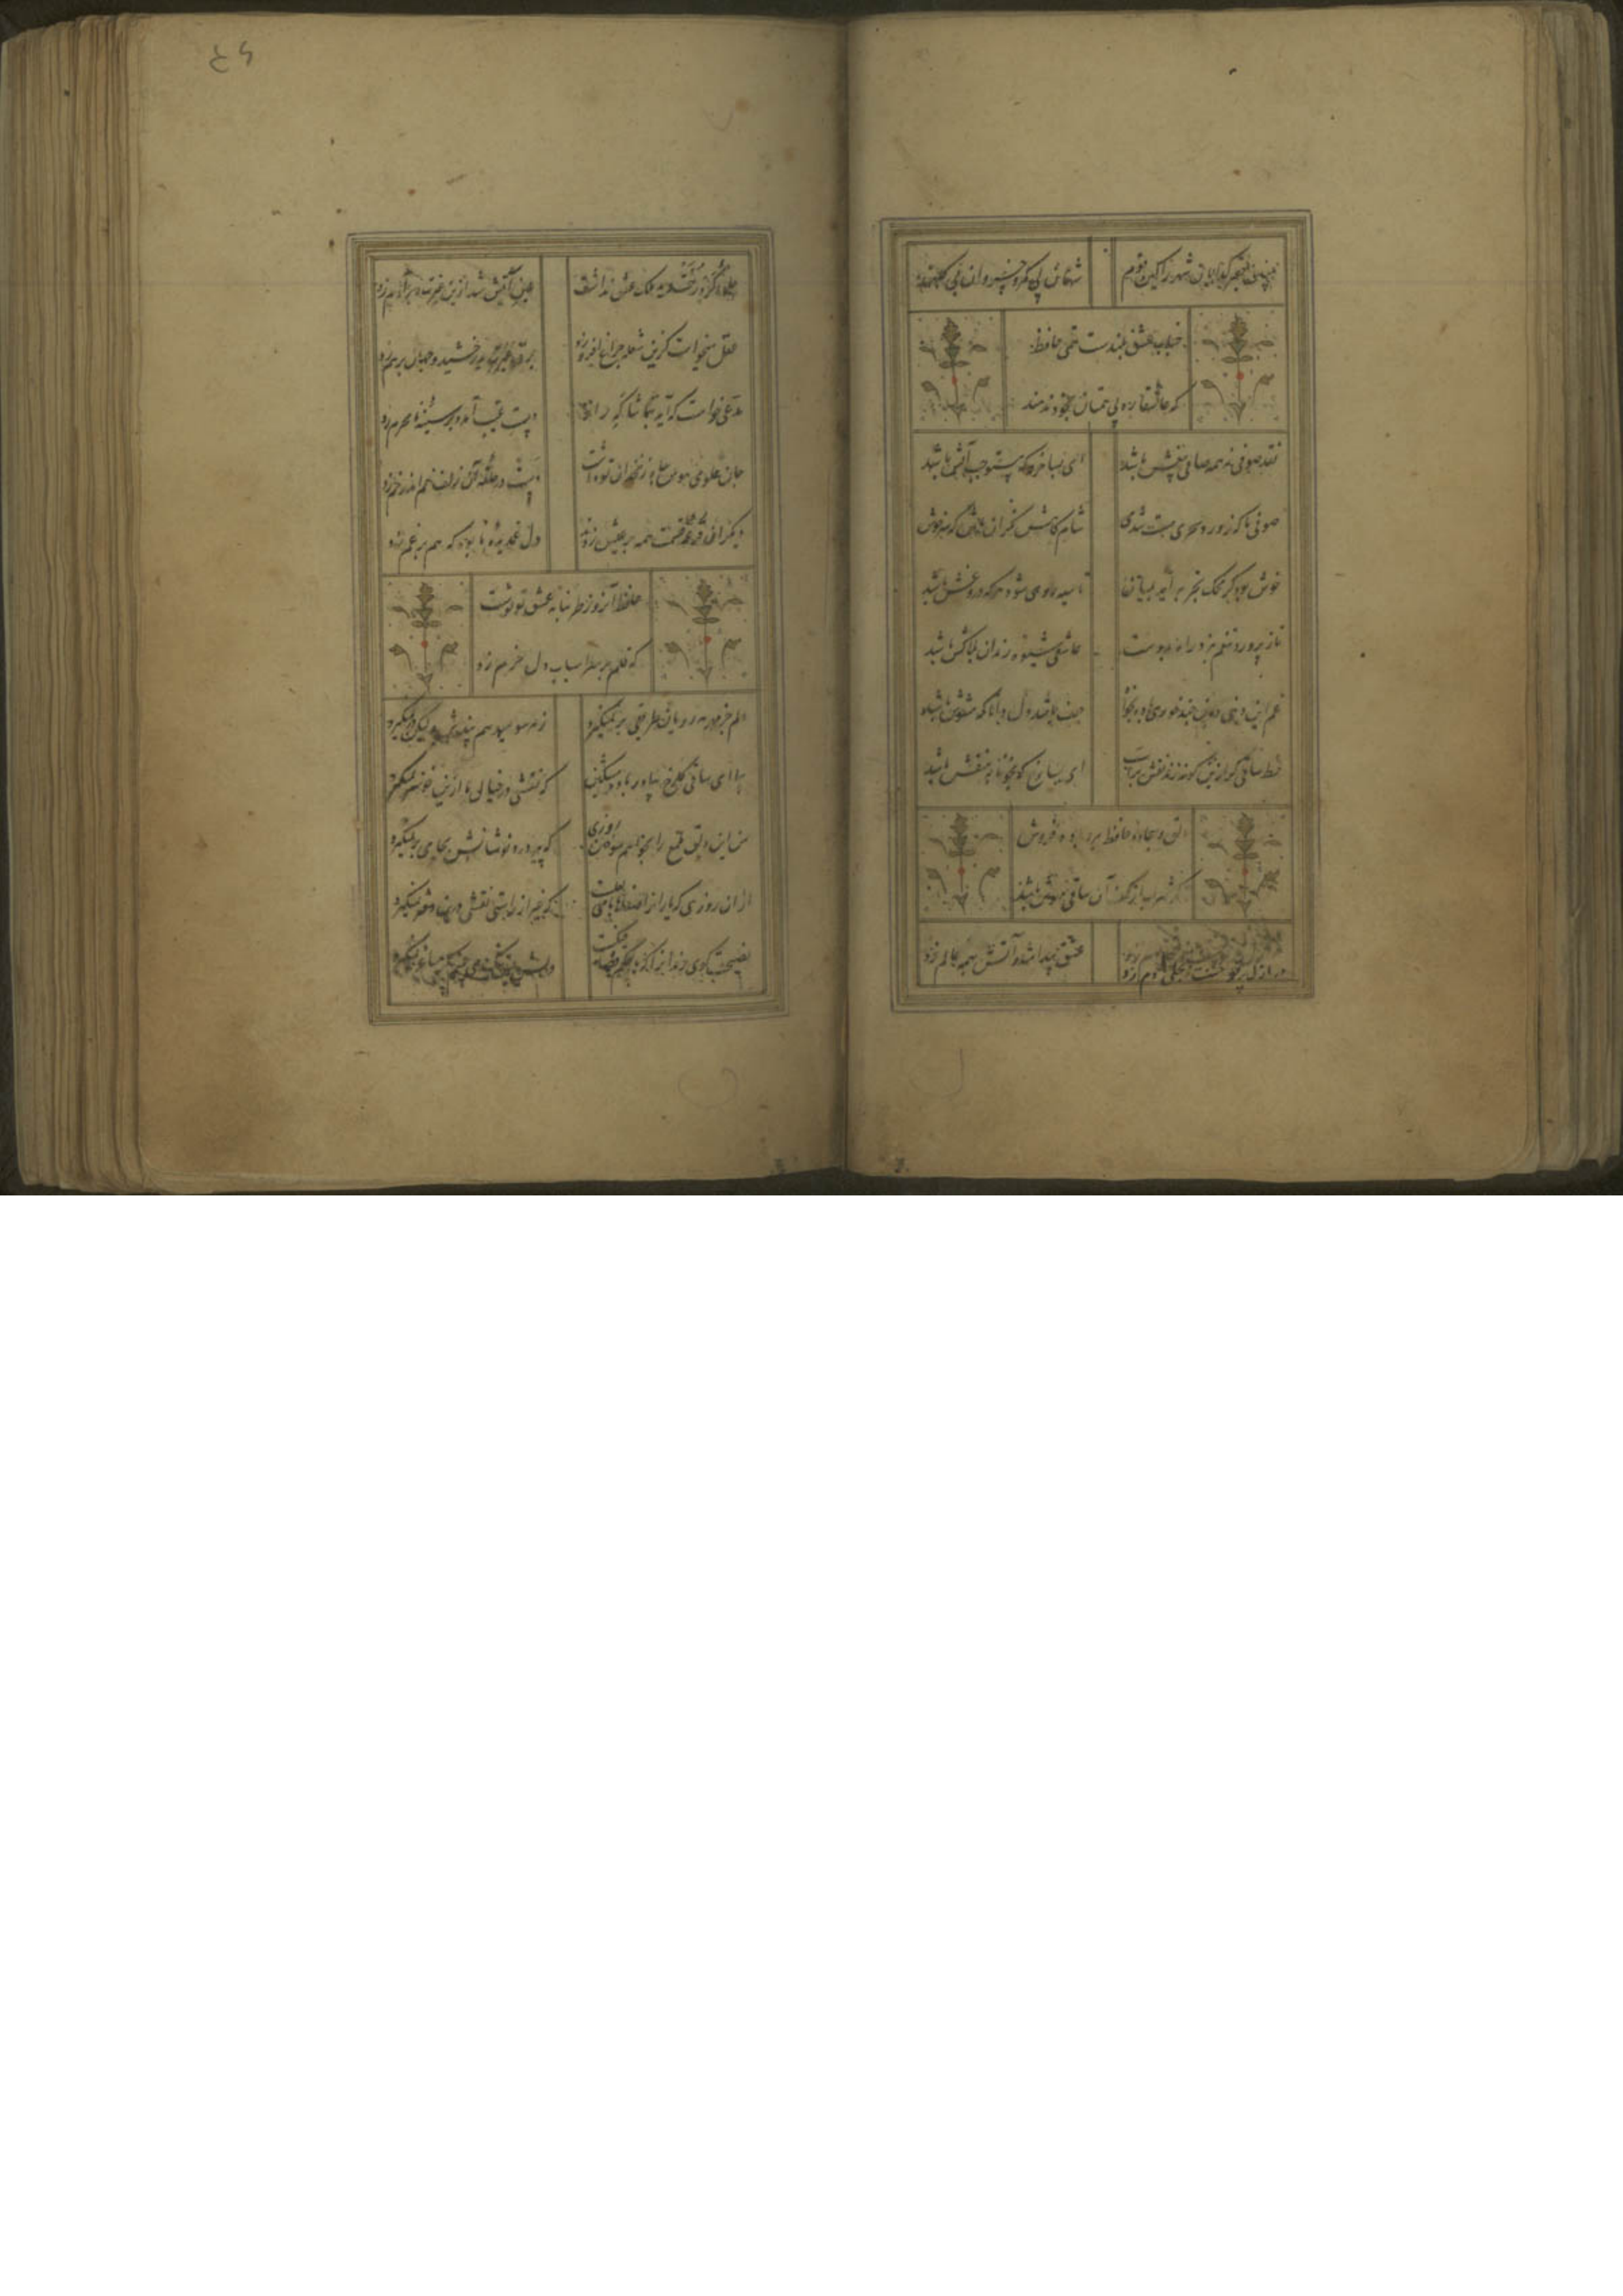 مبین حقیر گدایان شهر را کین قوم شهان بی کمر و خسروان بی کلهند
جناب عشق بلندست همتی حافظ
که عاشقان ره بی همتان بخود ندهند
نقد صوفی نه همه صافی بیغش باشد ای بسا خرقه که مستوجب آتش باشد
صوفی ما که ز ورد سحری مست شدی شامگاهش نگران باش که سرخوش باشد
خوش بود گر محک تجربه آید بمیان تا سیه روی شود هر که دروغش باشد
ناز پرورد تنعم نبرد راه بدوست عاشقی شیوه رندان بلاکش باشد
غم دنیی دنی چند خوری باده بخواه حیف باشد دل دانا که مشوش باشد
خط ساقی گر ازین گونه زند نقش برآب ای بسا رخ که بخونابه منقش باشد
دلق و سجاده حافظ ببرد باده فروش
گر شراب از کف آن ساقی مهوش باشد
در ازل پرتو حسنت ز تجلی دم زد عشق پیدا شد و آتش بهمه عالم زد
جلوه کرد رخت دید ملک عشق نداشت عین آتش شد ازین غیرت و بر آدم زد
عقل میخواست کزین شعله چراغ افروزد برق غیرت بدرخشید و جهان برهم زد
مدعی خواست که آید بتماشاگه راز دست غیب آمد و بر سینه نامحرم زد
جان علوی هوس چاه زنخدان تو داشت دست در حلقه آن زلف خم اندر خم زد
دیگران قرعه قسمت همه بر عیش زدند دل غمدیده ما بود که هم بر غم زد
حافظ آنروز طربنامه عشق تو نوشت
که قلم بر سر اسباب دل خرم زد
دلم جز مهر مه رویان طریقی بر نمیگیرد ز هر سو میدهم پندش ولیکن در نمیگیرد
بیا ای ساقی گلرخ بیاور باده رنگین که نقشی در خیال ما ازین خوشتر نمیگیرد
من این دلق مرقع را بخواهم سوختن روزی که پیر می فروشانش بجامی بر نمیگیرد
از ان روزی که یاران را صفاها با می لعلست که غیر از راستی نقشی درین جوهر نمیگیرد
نصیحت گوی رندان را که با حکم قضا جنگست دلش بس تنگ می بینم مگر ساغر نمیگیرد